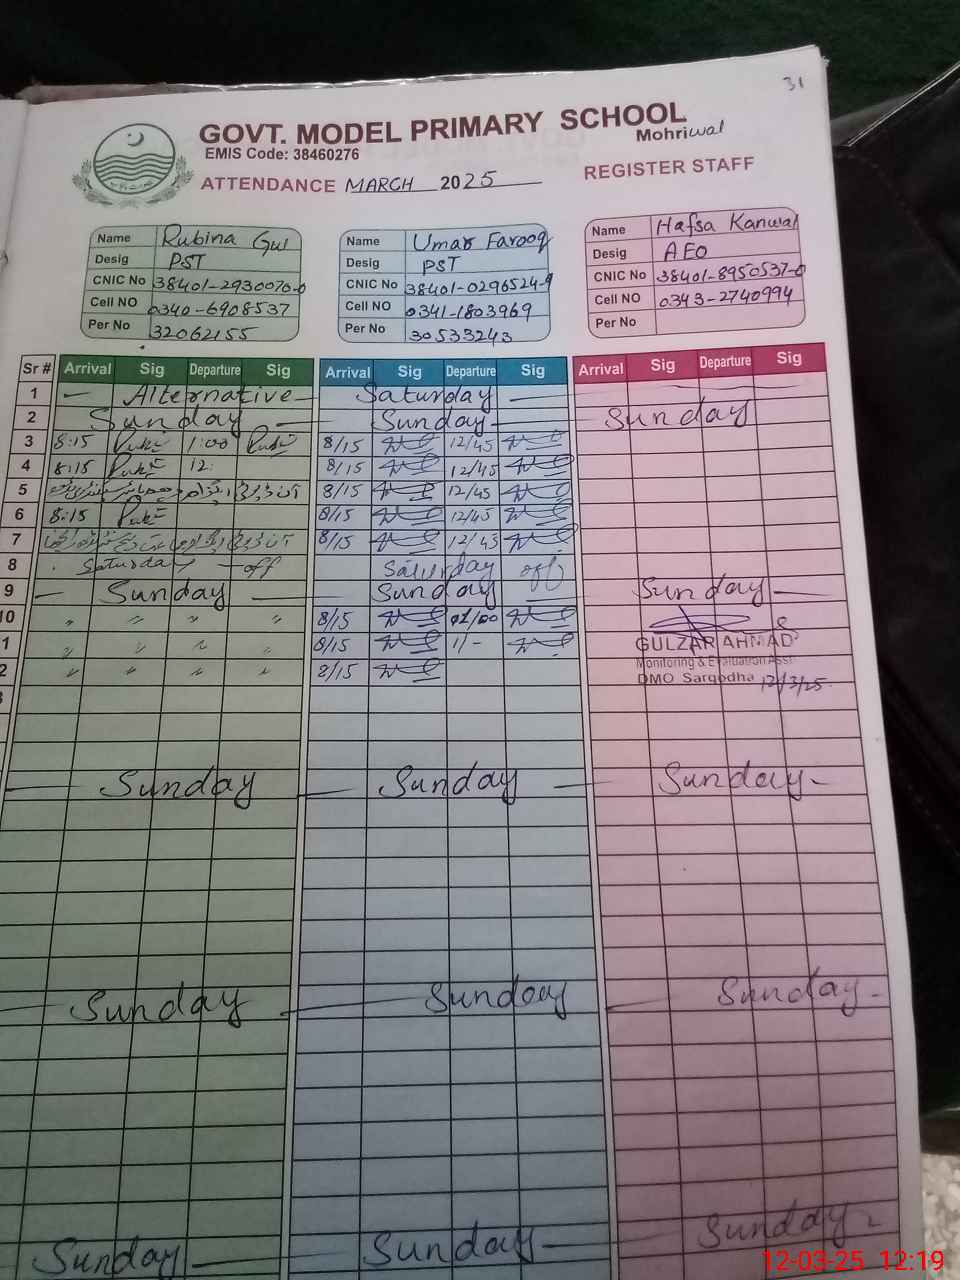 31
GOVT. MODEL PRIMARY SCHOOL
Mohriwal
EMIS Code: 38460276
ATTENDANCE MARCH 2025 REGISTER STAFF
Name Rubina Gul
Desig PST
CNIC No 38401-2930070-0
Cell NO 0340-6908537
Per No 32062155
Name Umar Farooq
Desig PST
CNIC No 38401-0296524-9
Cell NO 0341-1803969
Per No 30533243
Name Hafsa Kanwal
Desig AEO
CNIC No 38401-8950537-0
Cell NO 0343-2740994
Per No
Sr # Arrival Sig Departure Sig Arrival Sig Departure Sig Arrival Sig Departure Sig
1 — Alternative — Saturday —
2 Sunday — Sunday — Sunday
3 8:15 1:00 8/15 12/45
4 8:15 12: 8/15 12/45
5 8/15 12/45
6 8:15 8/15 12/45
7 8/15 12/45
8 Saturday — off Saturday off
9 — Sunday — Sunday Sunday —
10 " " " " 8/15 01/00
1 " " " " 8/15 1/-
2 " " " " 8/15
GULZAR AHMAD
Monitoring & Evaluation Asst
DMO Sargodha 12/3/25
— Sunday — Sunday — Sunday -
— Sunday — Sunday — Sunday -
Sunday — Sunday — Sunday -
12-03-25 12:19